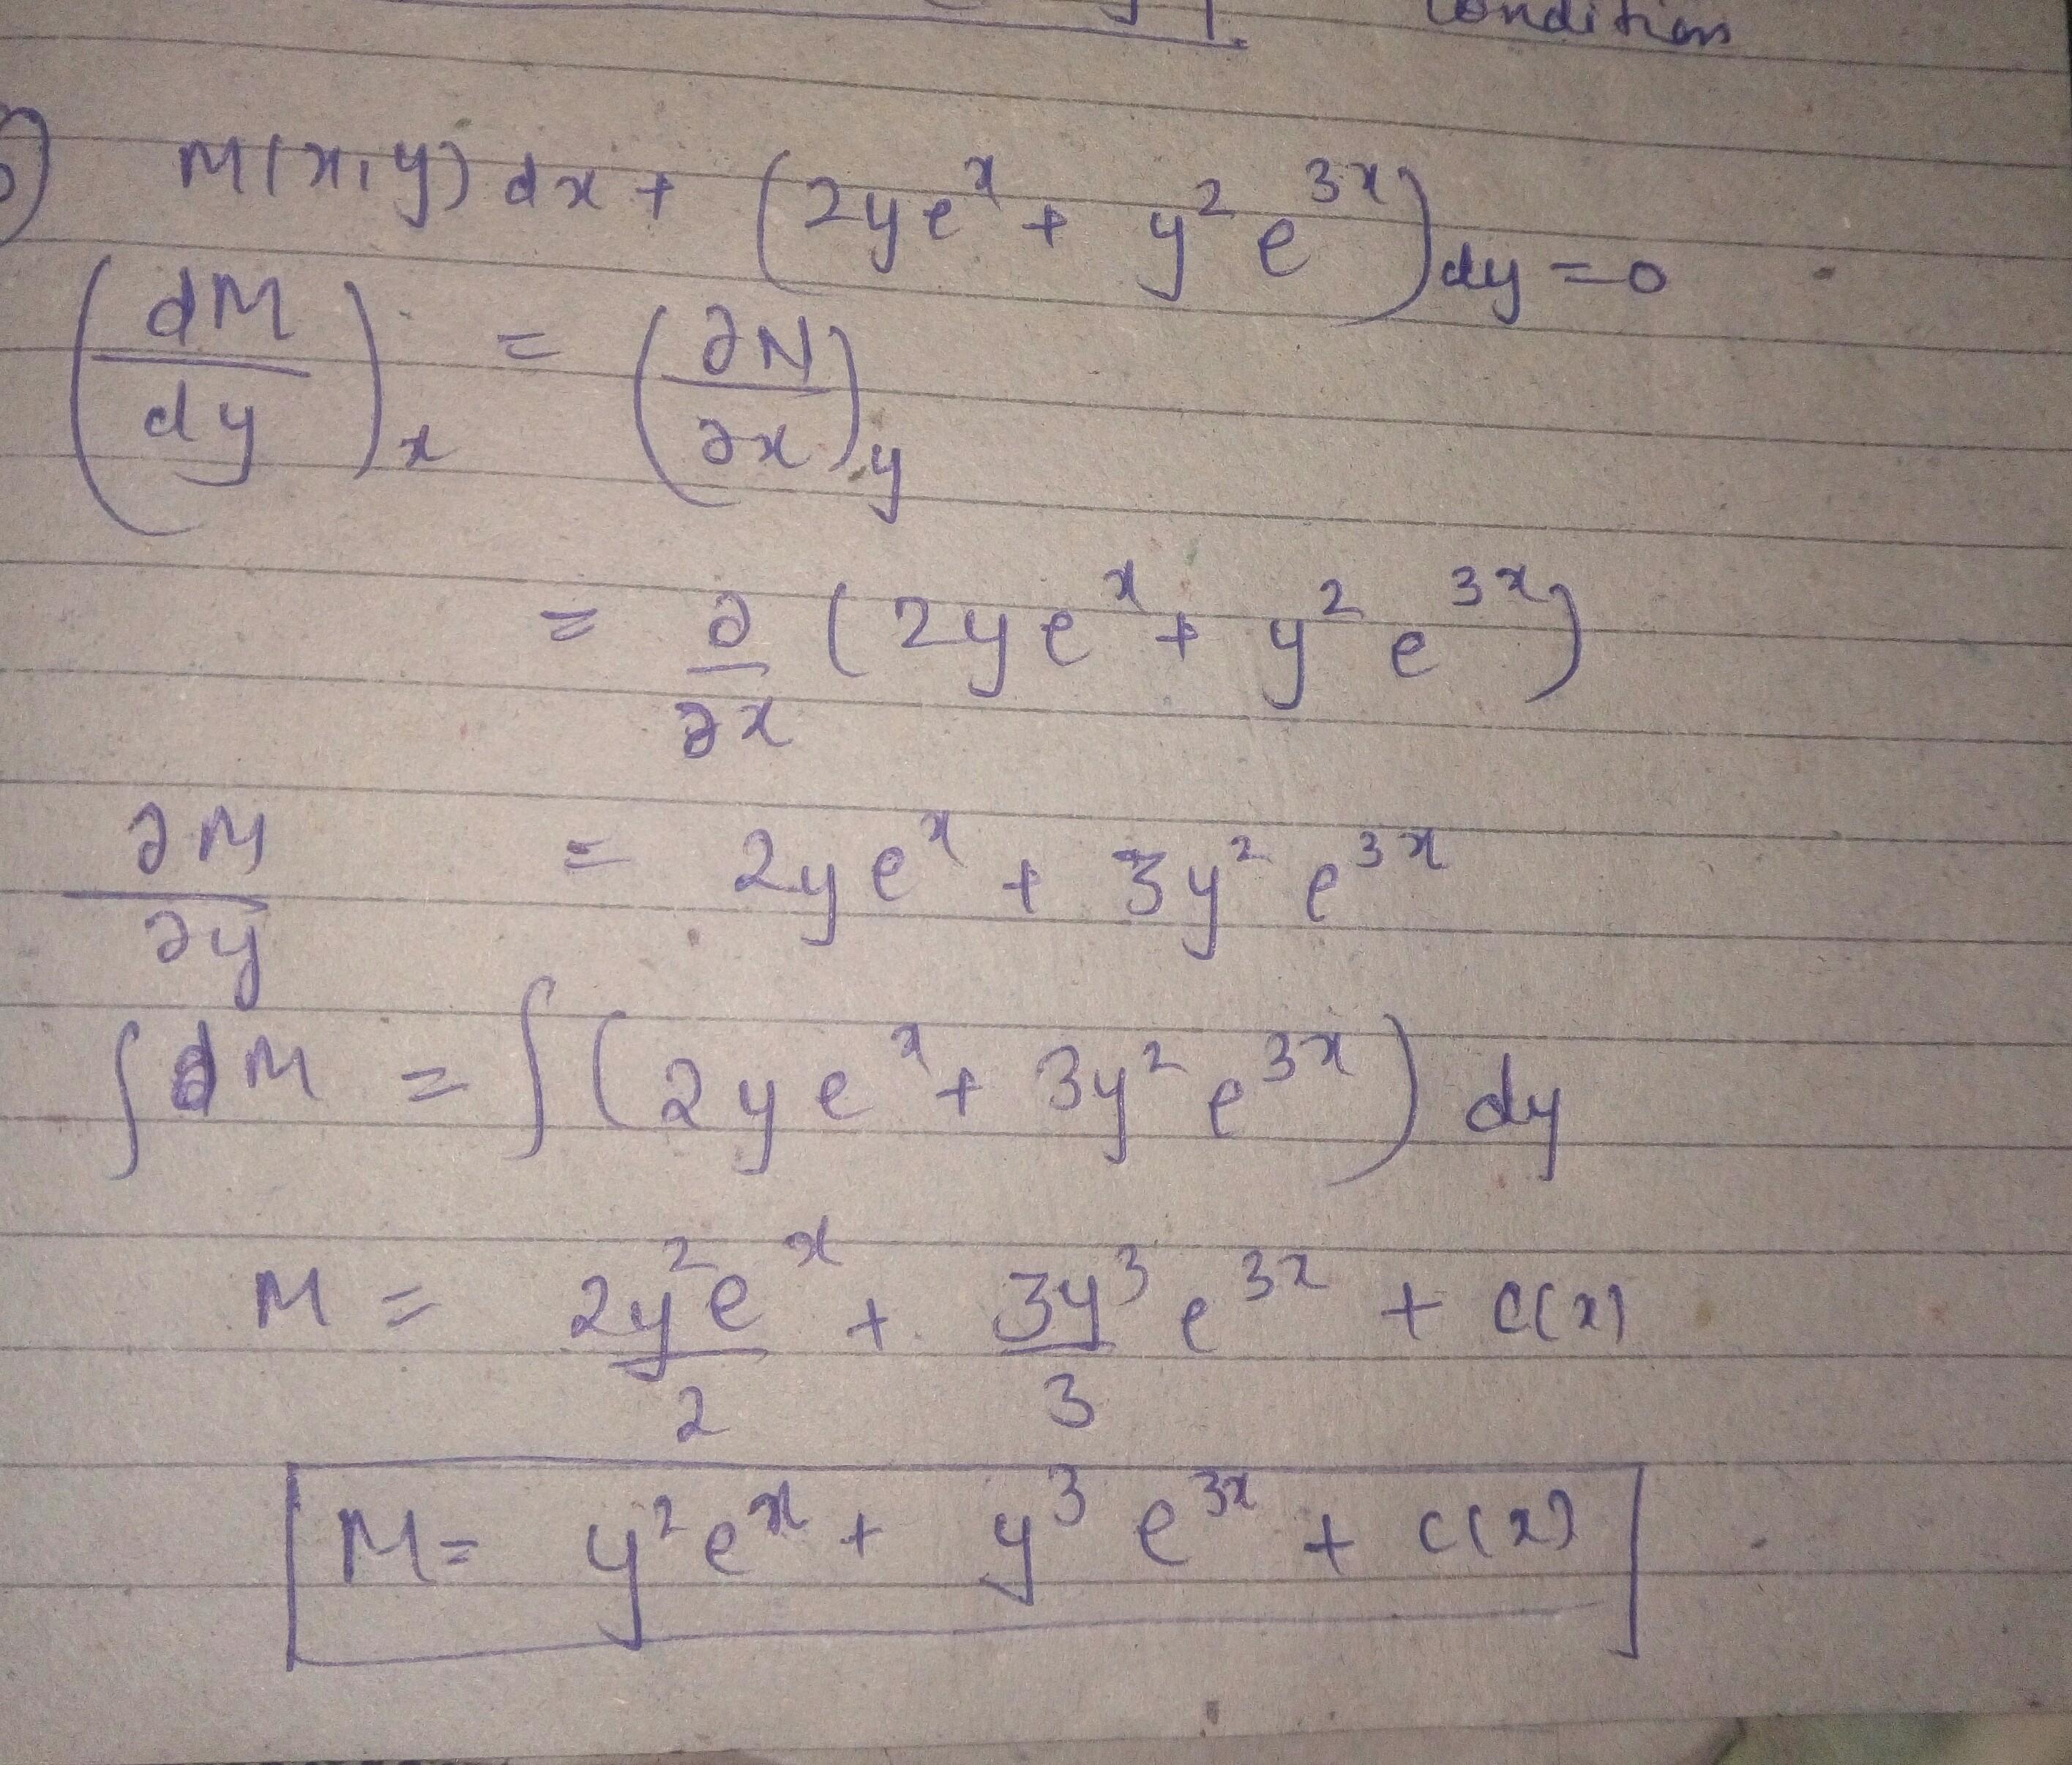 condition
) M(x,y) dx + (2ye^x + y^2 e^3x) dy = 0
(dM/dy)x = (∂N/∂x)y
= ∂/∂x (2ye^x + y^2 e^3x)
∂M/∂y = 2ye^x + 3y^2 e^3x
∫dM = ∫(2ye^x + 3y^2 e^3x) dy
M = 2y^2e^x/2 + 3y^3/3 e^3x + c(x)
M = y^2e^x + y^3 e^3x + c(x)